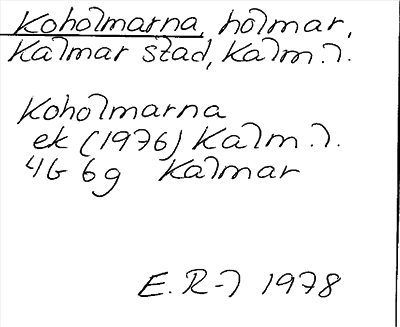 Koholmarna, holmar,
Kalmar stad, Kalm.l.
Koholmarna
ek (1976) Kalm.l.
4G 6g Kalmar
E.R-l 1978